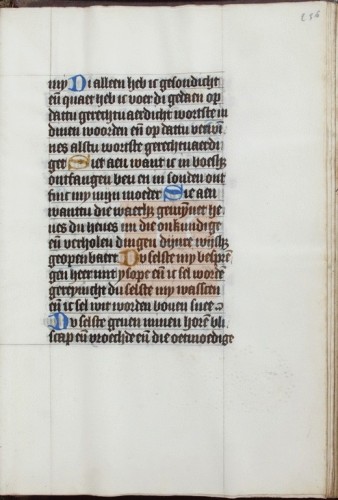 my Di alleen heb ic gesondicht
eñ quaet heb ic voer di gedaen op
dattu gerechtuaerdicht wortste in
dinen woorden eñ op dattu verwi
nes alstu wortste gerechtuaerdi
get Siet aen want ic in boesh̃
ontfangen ben en in sonden ont
finc my mijn moeder Sie aen
wanttu die waerh̃ gemynet he
nes du heues mi die onkundige
eñ verholen dingen dijnre wijsh̃
geopenbaert Du selste my bespre
gen heer mit ysope eñ ic sel wordẽ
gereynicht du selste my wasscen
eñ ic sel wit worden bouen snee
Du selste geuen minen horẽ bli
scap eñ vroechde eñ die oetmoedige